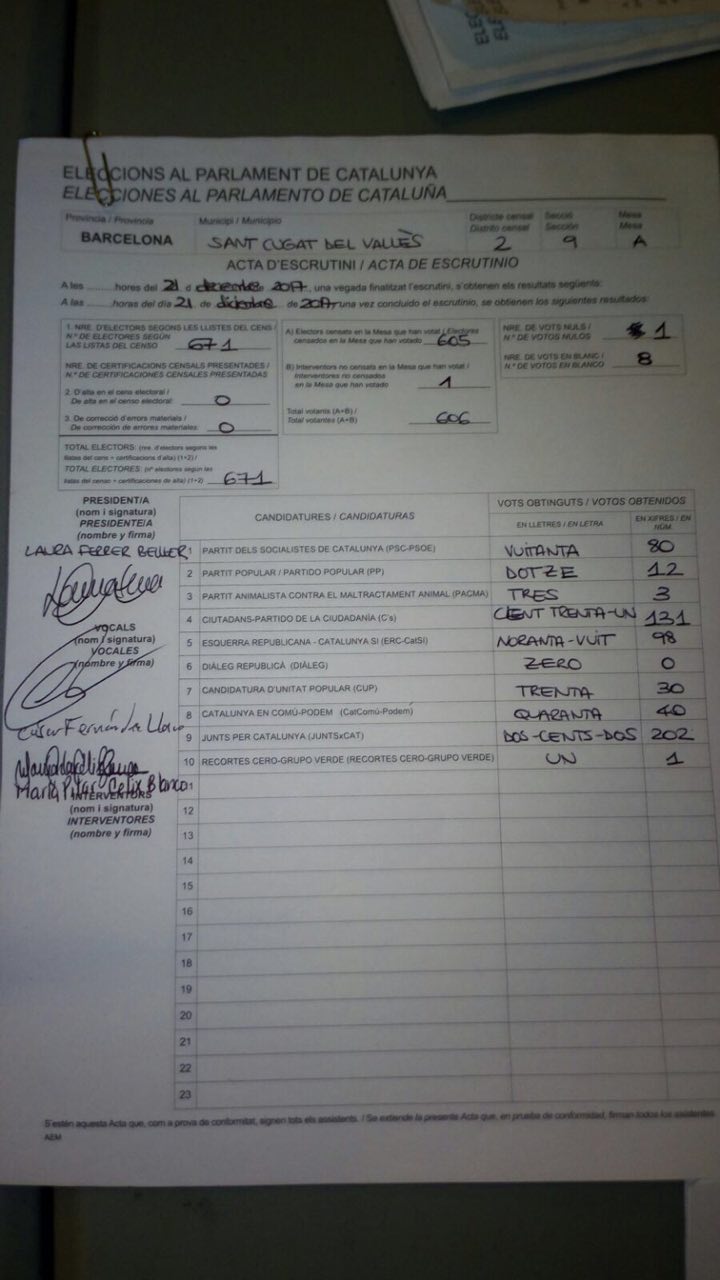 ELECCIONS AL PARLAMENT DE CATALUNYA
ELECCIONES AL PARLAMENTO DE CATALUÑA
Província / Provincia
Municipi / Municipio
Districte censal
Distrito censal
Secció
Sección
Mesa
Mesa
BARCELONA SANT CUGAT DEL VALLÈS 2 9 A
ACTA D'ESCRUTINI / ACTA DE ESCRUTINIO
A les ........hores del 21 d desembre 2017, una vegada finalitzat l'escrutini, s'obtenen els resultats següents:
A las ........horas del día 21 de diciembre de 2017, una vez concluido el escrutinio, se obtienen los siguientes resultados:
1. NRE. D'ELECTORS SEGONS LES LLISTES DEL CENS /
N.º DE ELECTORES SEGÚN
LAS LISTAS DEL CENSO 671
NRE. DE CERTIFICACIONS CENSALS PRESENTADES /
N.º DE CERTIFICACIONES CENSALES PRESENTADAS
2. D'alta en el cens electoral /
De alta en el censo electoral: 0
3. De correcció d'errors materials /
De corrección de errores materiales: 0
TOTAL ELECTORS: (nre. d'electors segons les
llistes del cens + certificacions d'alta) (1+2) /
TOTAL ELECTORES: (nº electores según las
listas del censo + certificaciones de alta) (1+2) 671
A) Electors censats en la Mesa que han votat / Electores
censados en la Mesa que han votado 605
B) Interventors no censats en la Mesa que han votat /
Interventores no censados
en la Mesa que han votado 1
Total votants (A+B) /
Total votantes (A+B) 606
NRE. DE VOTS NULS /
N.º DE VOTOS NULOS 1
NRE. DE VOTS EN BLANC /
N.º DE VOTOS EN BLANCO 8
PRESIDENT/A
(nom i signatura)
PRESIDENTE/A
(nombre y firma)
LAURA FERRER BELLER
VOCALS
(nom i signatura)
VOCALES
(nombre y firma)
César Fernández
María Pilar Celix Blanco
INTERVENTORS
(nom i signatura)
INTERVENTORES
(nombre y firma)
CANDIDATURES / CANDIDATURAS
VOTS OBTINGUTS / VOTOS OBTENIDOS
EN LLETRES / EN LETRA
EN XIFRES / EN
NÚM.
1 PARTIT DELS SOCIALISTES DE CATALUNYA (PSC-PSOE) VUITANTA 80
2 PARTIT POPULAR / PARTIDO POPULAR (PP) DOTZE 12
3 PARTIT ANIMALISTA CONTRA EL MALTRACTAMENT ANIMAL (PACMA) TRES 3
4 CIUTADANS-PARTIDO DE LA CIUDADANÍA (C's) CENT TRENTA-UN 131
5 ESQUERRA REPUBLICANA - CATALUNYA SÍ (ERC-CatSí) NORANTA-VUIT 98
6 DIÀLEG REPUBLICÀ (DIÀLEG) ZERO 0
7 CANDIDATURA D'UNITAT POPULAR (CUP) TRENTA 30
8 CATALUNYA EN COMÚ-PODEM (CatComú-Podem) QUARANTA 40
9 JUNTS PER CATALUNYA (JUNTSxCAT) DOS-CENTS-DOS 202
10 RECORTES CERO-GRUPO VERDE (RECORTES CERO-GRUPO VERDE) UN 1
11
12
13
14
15
16
17
18
19
20
21
22
23
S'estén aquesta Acta que, com a prova de conformitat, signen tots els assistents. / Se extiende la presente Acta que, en prueba de conformidad, firman todos los asistentes.
AEM